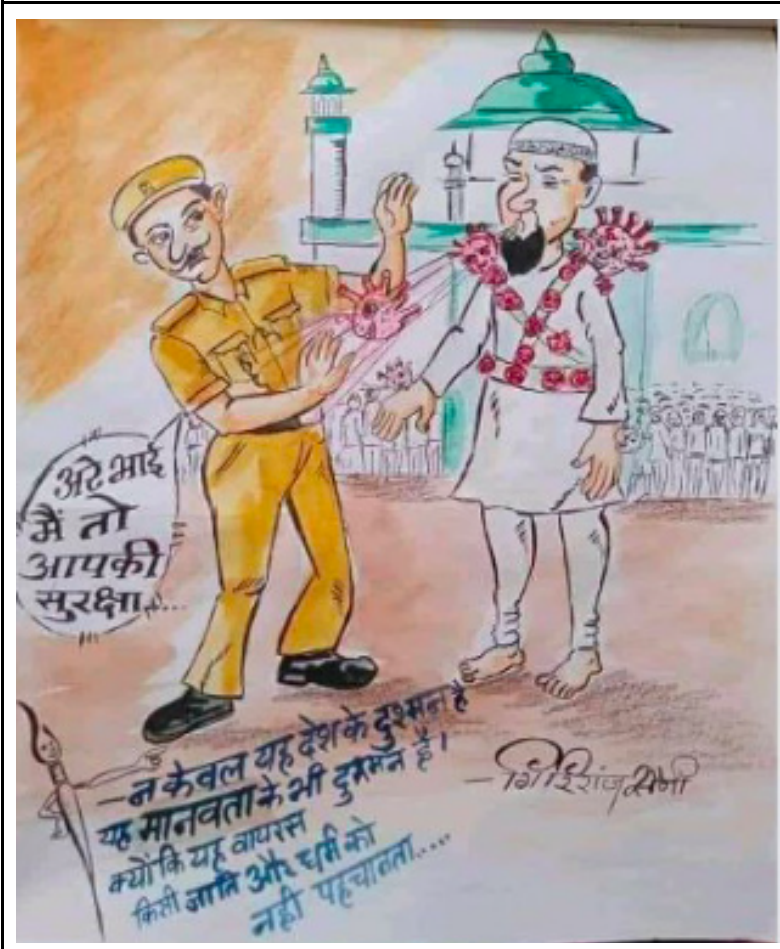 अरे भाई
मैं तो
आपकी
सुरक्षा....
—न केवल यह देश के दुश्मन है
यह मानवता के भी दुश्मन है।
क्योंकि यह वायरस
किसी जाति और धर्म को
नही पहचानता....